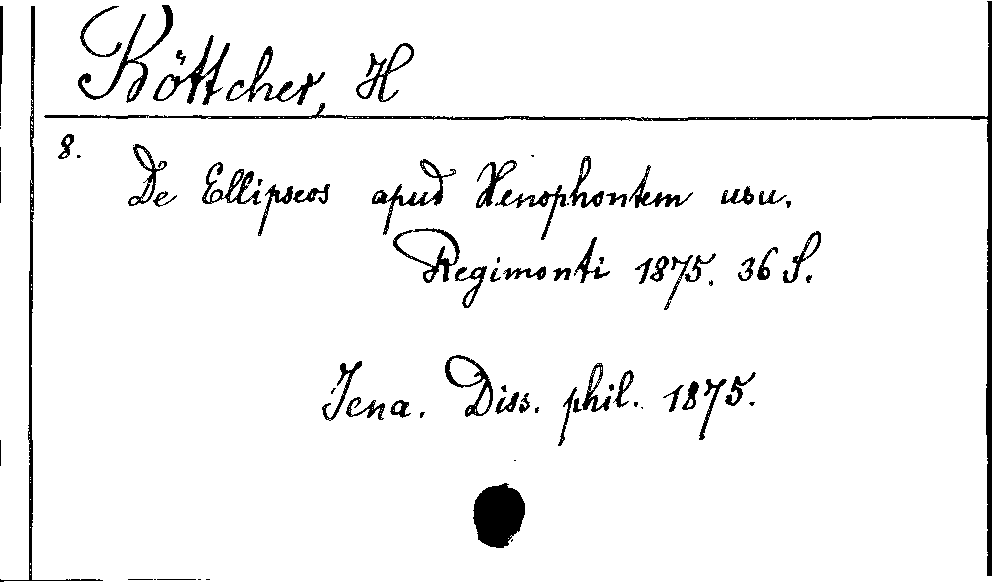 Böttcher, H
8.
De Ellipseos apud Xenophontem usu.
Regimonti 1875. 36 S.
Jena. Diss. phil. 1875.